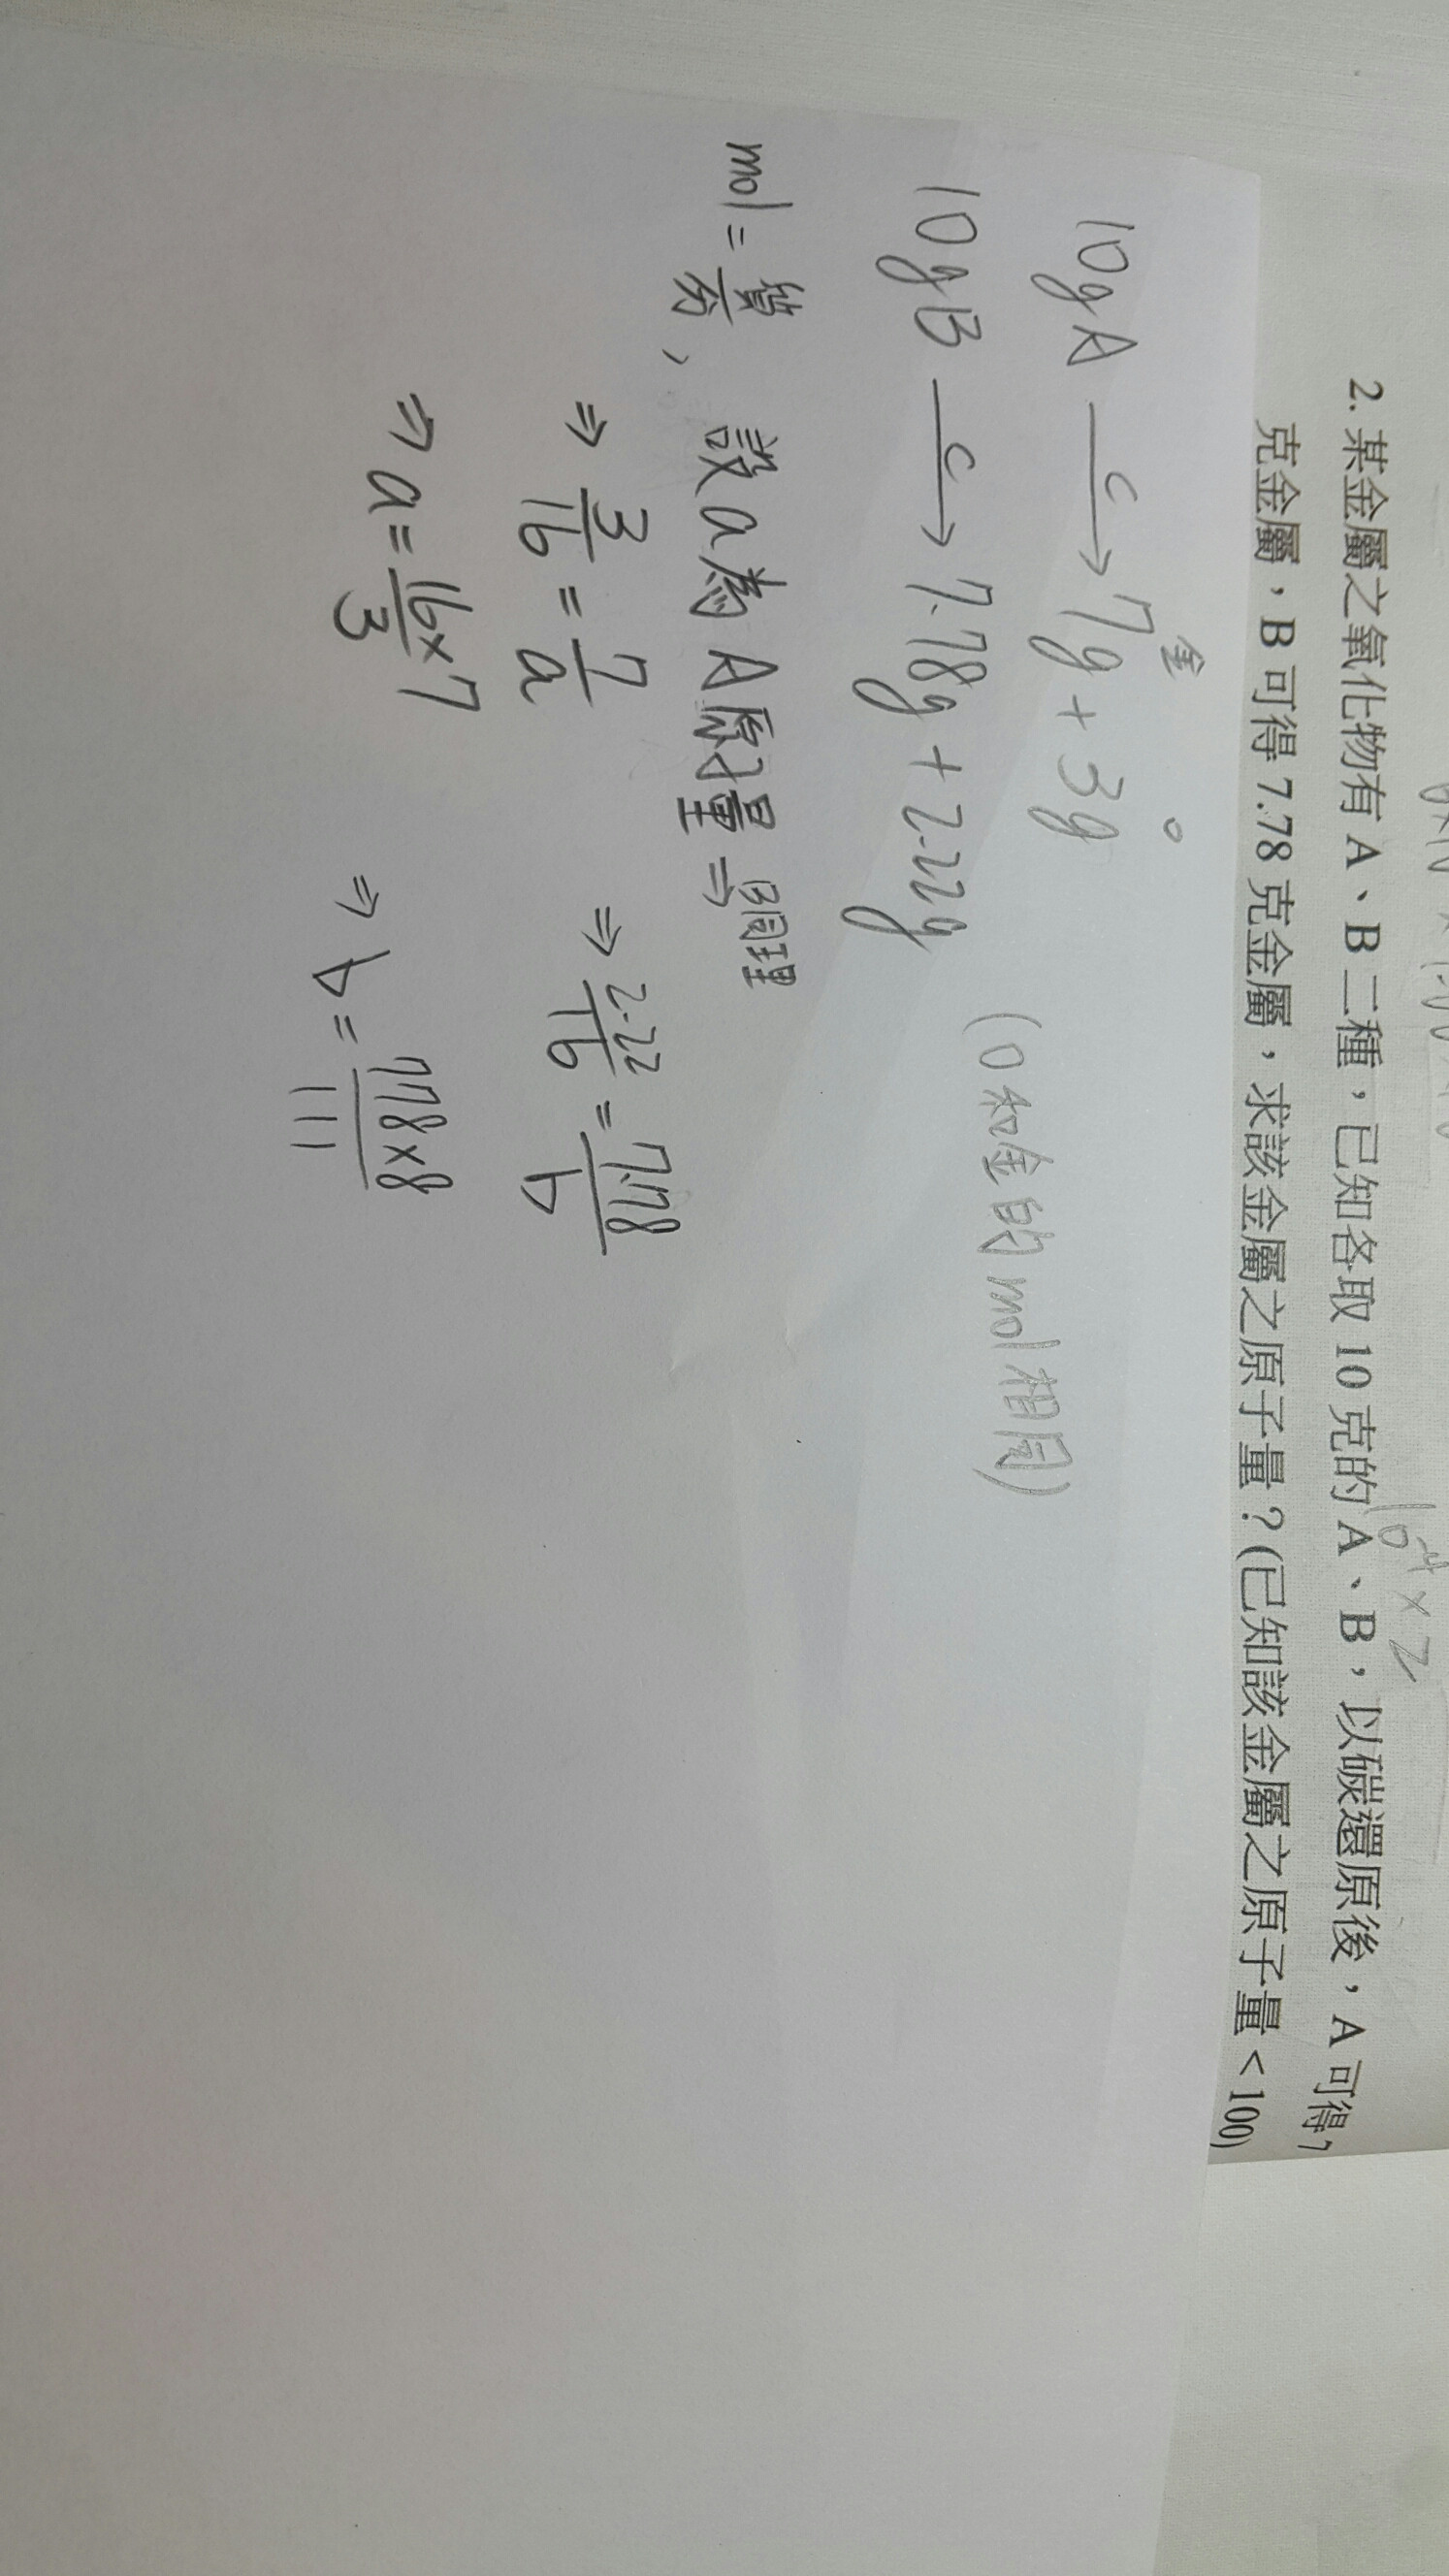 10⁻⁴ × 2
2. 某金屬之氧化物有 A、B 二種，已知各取 10 克的 A、B，以碳還原後，A 可得 7
克金屬，B 可得 7.78 克金屬，求該金屬之原子量？(已知該金屬之原子量 < 100)
金 O
10g A —C→ 7g + 3g
10g B —C→ 7.78g + 2.22g (O和金的mol相同)
mol = 質/分， 設a為A原子量 ⇒ b同理
⇒ 3/16 = 7/a ⇒ 2.22/16 = 7.78/b
⇒ a = 16×7/3 ⇒ b = 778×8/111